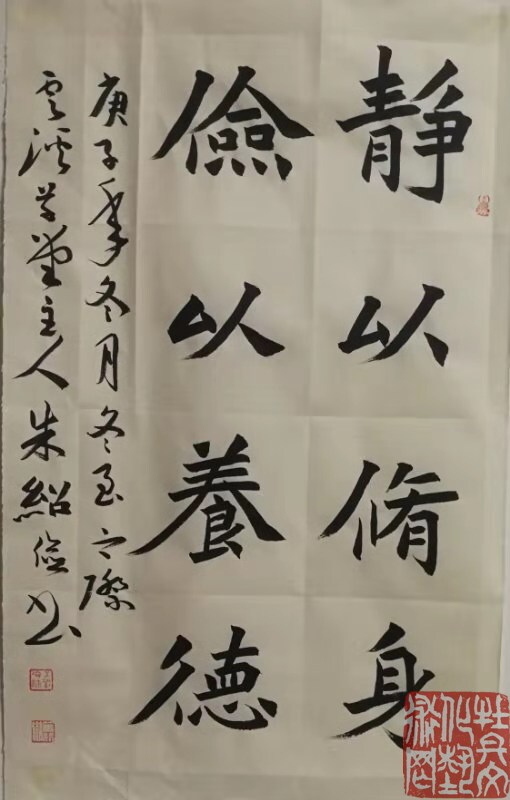 靜以脩身
儉以養德
庚子年冬月冬至之際
雲溪草堂主人朱紹儉書